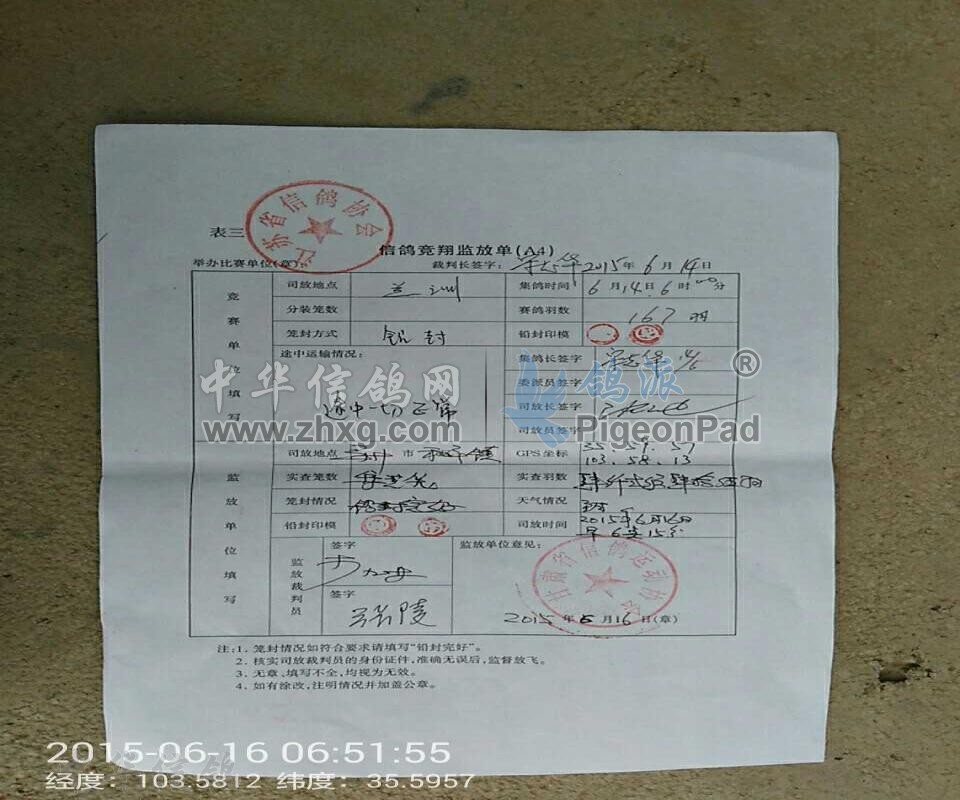 江苏省信鸽协会
表三
信鸽竞翔监放单(A4)
举办比赛单位(章): 裁判长签字: 2015年6月14日
竞赛单位填写
司放地点 兰州 集鸽时间 6月14日6时 分
分装笼数 赛鸽羽数 167羽
笼封方式 铅封 铅封印模
途中运输情况: 集鸽长签字
委派员签字
途中一切正常 司放长签字
司放员签字
监放单位填写
司放地点 市 GPS坐标 35.59.57
103.58.13
实查笼数 实查羽数
笼封情况 铅封完好 天气情况
铅封印模 司放时间 2015年6月16日
早6点15分
监放裁判员 签字 监放单位意见:
签字
甘肃省信鸽运动协会
2015年6月16日(章)
注:1. 笼封情况如符合要求请填写“铅封完好”。
2. 核实司放裁判员的身份证件,准确无误后,监督放飞。
3. 无章、填写不全,均视为无效。
4. 如有涂改,注明情况并加盖公章。
中华信鸽网
www.zhxg.com
鸽派®
PigeonPad
2015-06-16 06:51:55
经度: 103.5812 纬度: 35.5957